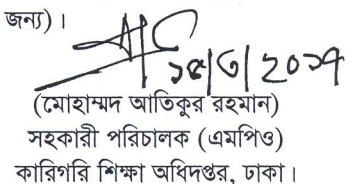 জন্য)।
(মোহাম্মদ আতিকুর রহমান)
সহকারী পরিচালক (এমপিও)
কারিগরি শিক্ষা অধিদপ্তর, ঢাকা।